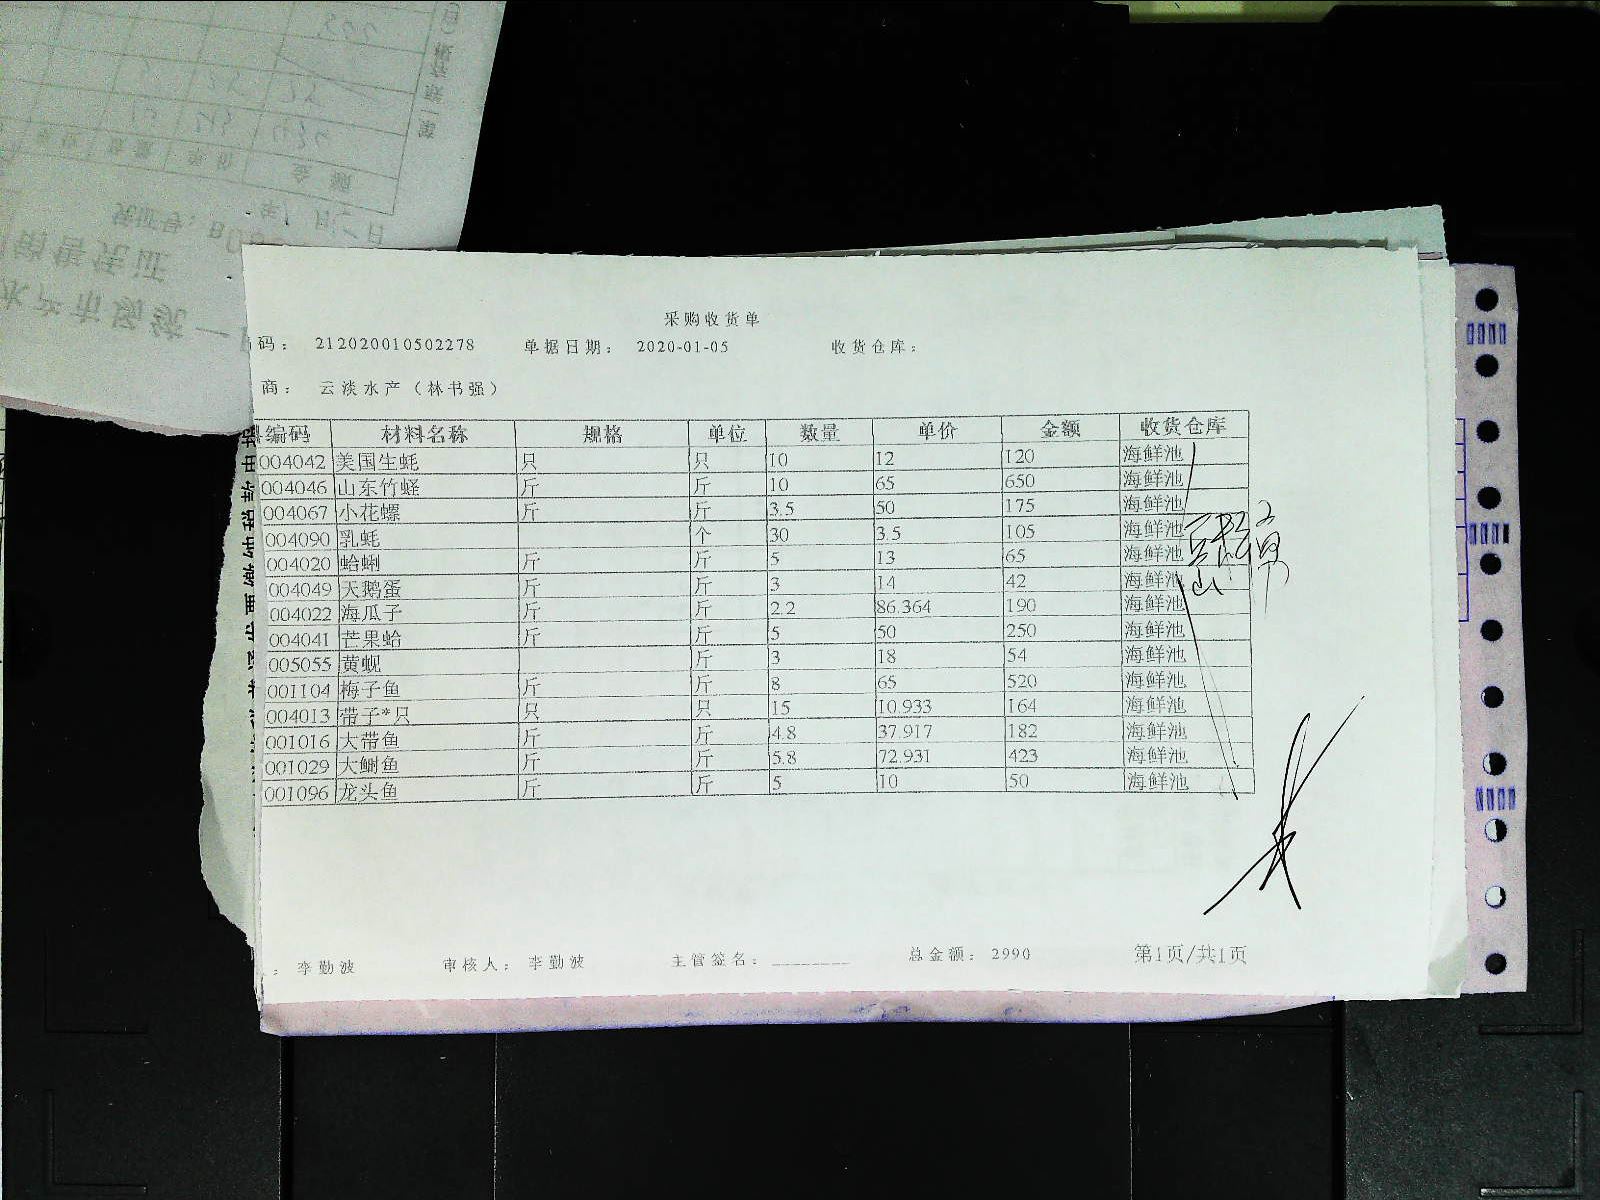 采购收货单
码： 212020010502278 单据日期： 2020-01-05 收货仓库：
商： 云淡水产（林书强）
编码 材料名称 规格 单位 数量 单价 金额 收货仓库
004042 美国生蚝 只 只 10 12 120 海鲜池
004046 山东竹蛏 斤 斤 10 65 650 海鲜池
004067 小花螺 斤 斤 3.5 50 175 海鲜池
004090 乳蚝 个 30 3.5 105 海鲜池
004020 蛤蜊 斤 斤 5 13 65 海鲜池
004049 天鹅蛋 斤 斤 3 14 42 海鲜池
004022 海瓜子 斤 斤 2.2 86.364 190 海鲜池
004041 芒果蛤 斤 斤 5 50 250 海鲜池
005055 黄蚬 斤 3 18 54 海鲜池
001104 梅子鱼 斤 斤 8 65 520 海鲜池
004013 带子*只 只 只 15 10.933 164 海鲜池
001016 大带鱼 斤 斤 4.8 37.917 182 海鲜池
001029 大鲷鱼 斤 斤 5.8 72.931 423 海鲜池
001096 龙头鱼 斤 斤 5 10 50 海鲜池
：李勤波 审核人：李勤波 主管签名：________ 总金额：2990 第1页/共1页
水产市场统一
销售凭证
凭证号：
单价 金额